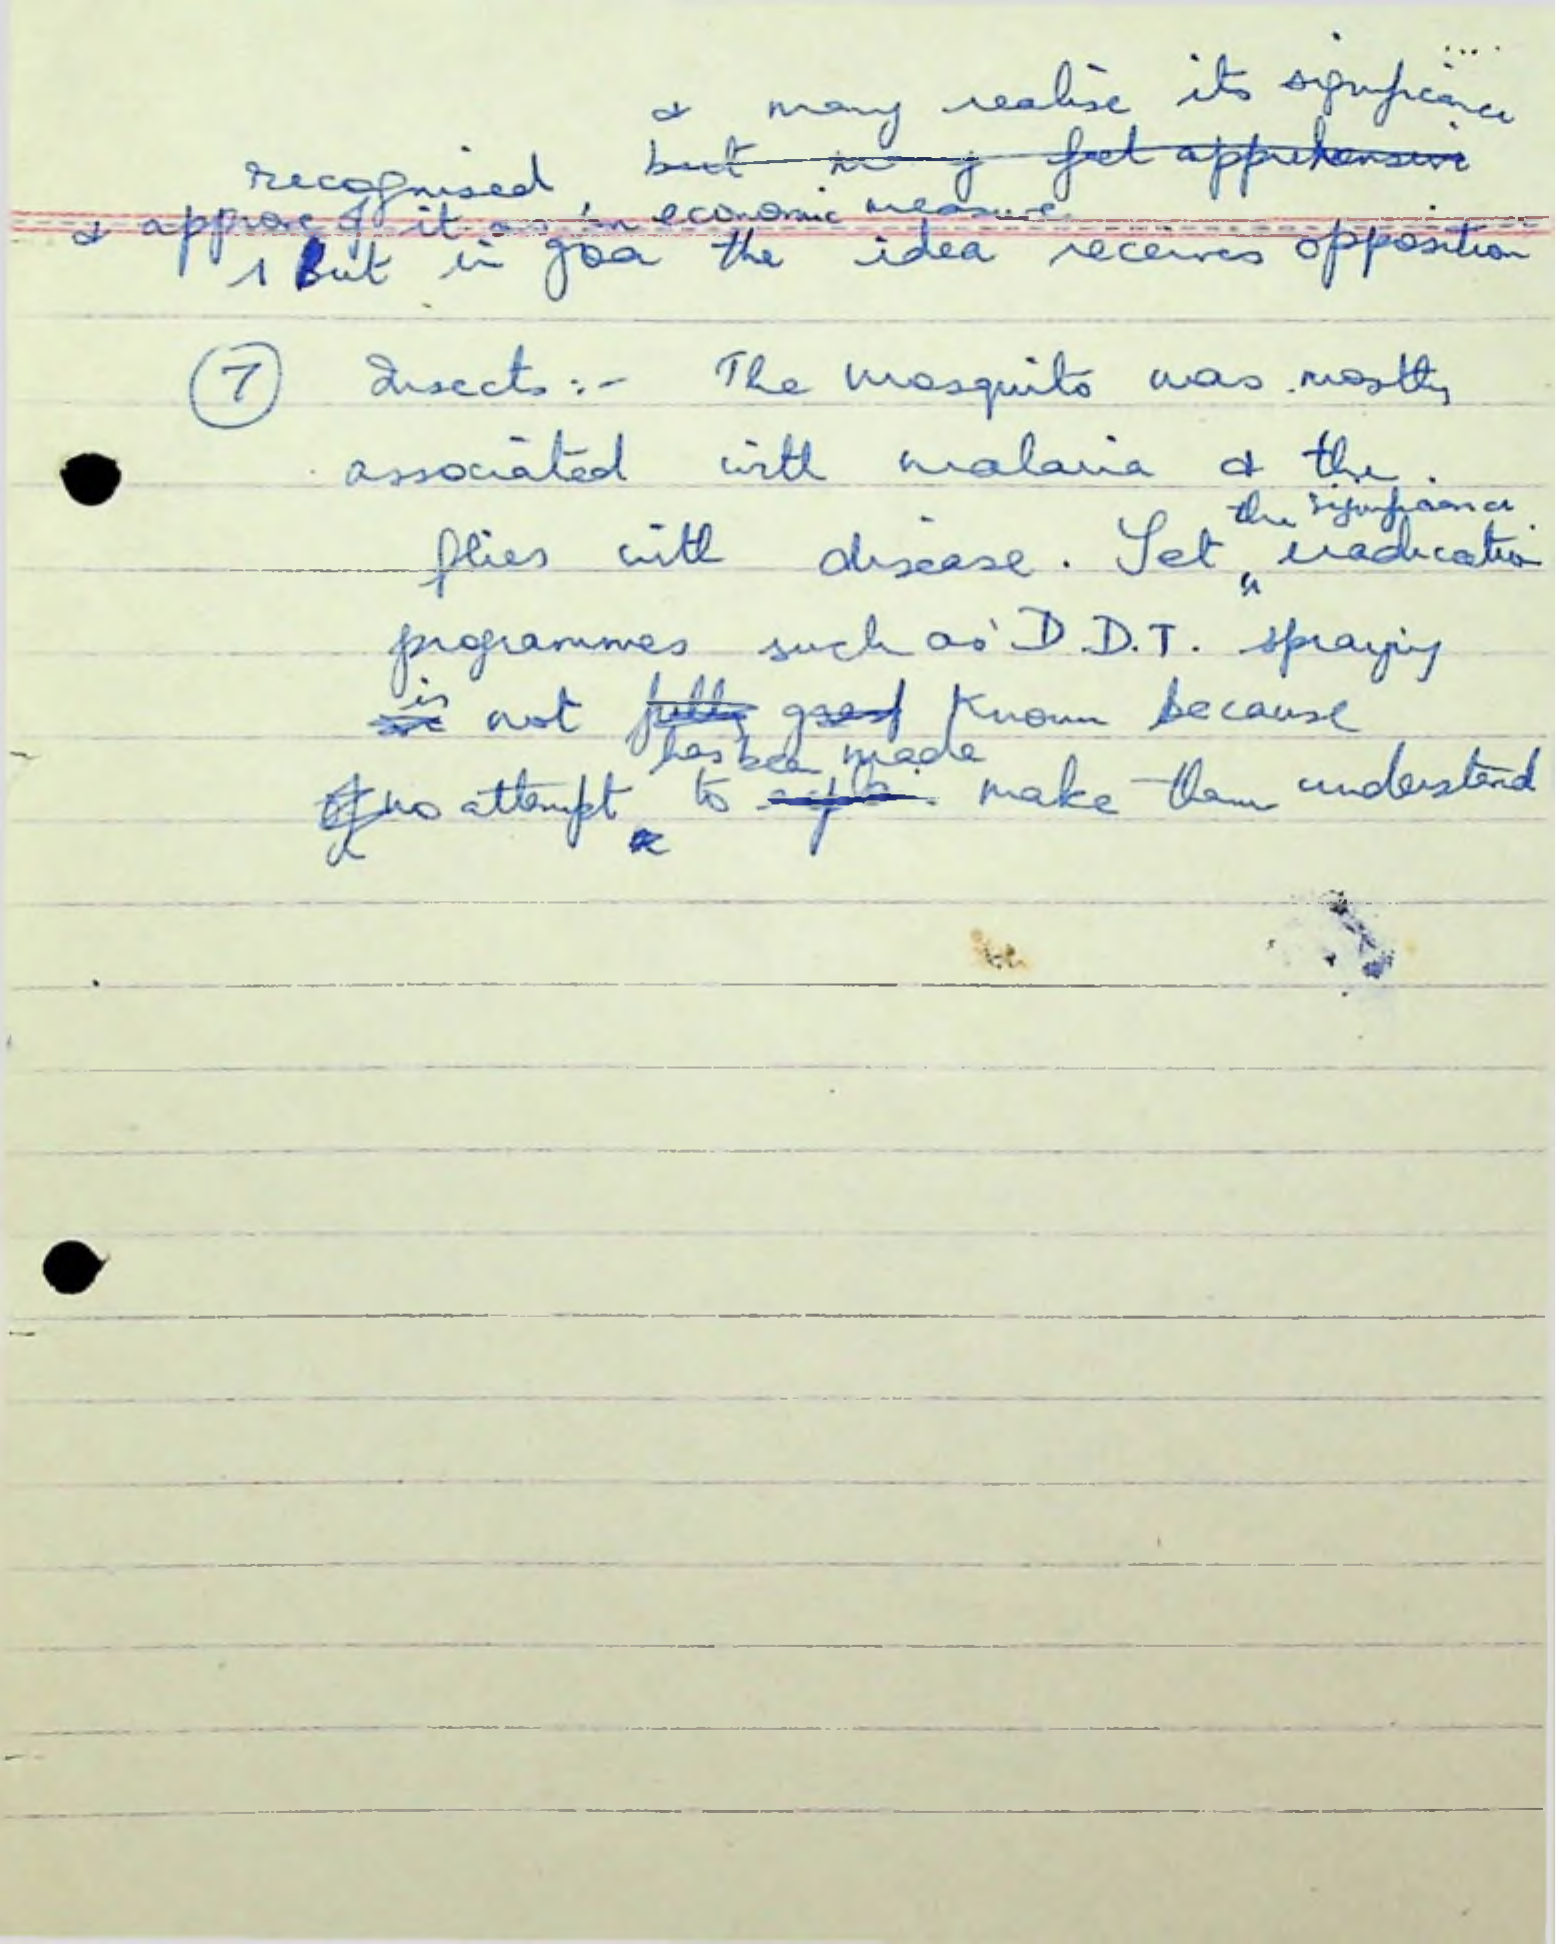 & many realise its significance
recognised but many feel apprehensive
& approve of it as an economic measure
But in Goa the idea receives opposition
7 Insects:- The mosquito was mostly
associated with malaria & the
the significance
flies with disease. Yet eradication
programmes such as D.D.T. spraying
is
not fully known because
has been made
no attempt to make them understand